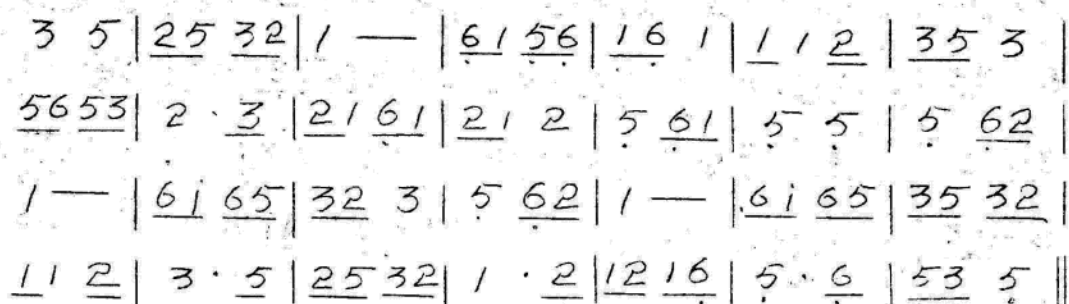 3 5 | 25 32 | 1 — | 6̣1 5̣6̣ | 16̣ 1 | 1 1 2 | 35 3 |
56 53 | 2 · 3 | 21 6̣1 | 21 2 | 5̣ 6̣1 | 5̣ 5̣ | 5̣ 6̣2 |
1 — | 6i 65 | 32 3 | 5̣ 6̣2 | 1 — | 6i 65 | 35 32 |
1 1 2 | 3 · 5 | 25 32 | 1 · 2 | 12 16̣ | 5̣ · 6̣ | 53 5 ‖